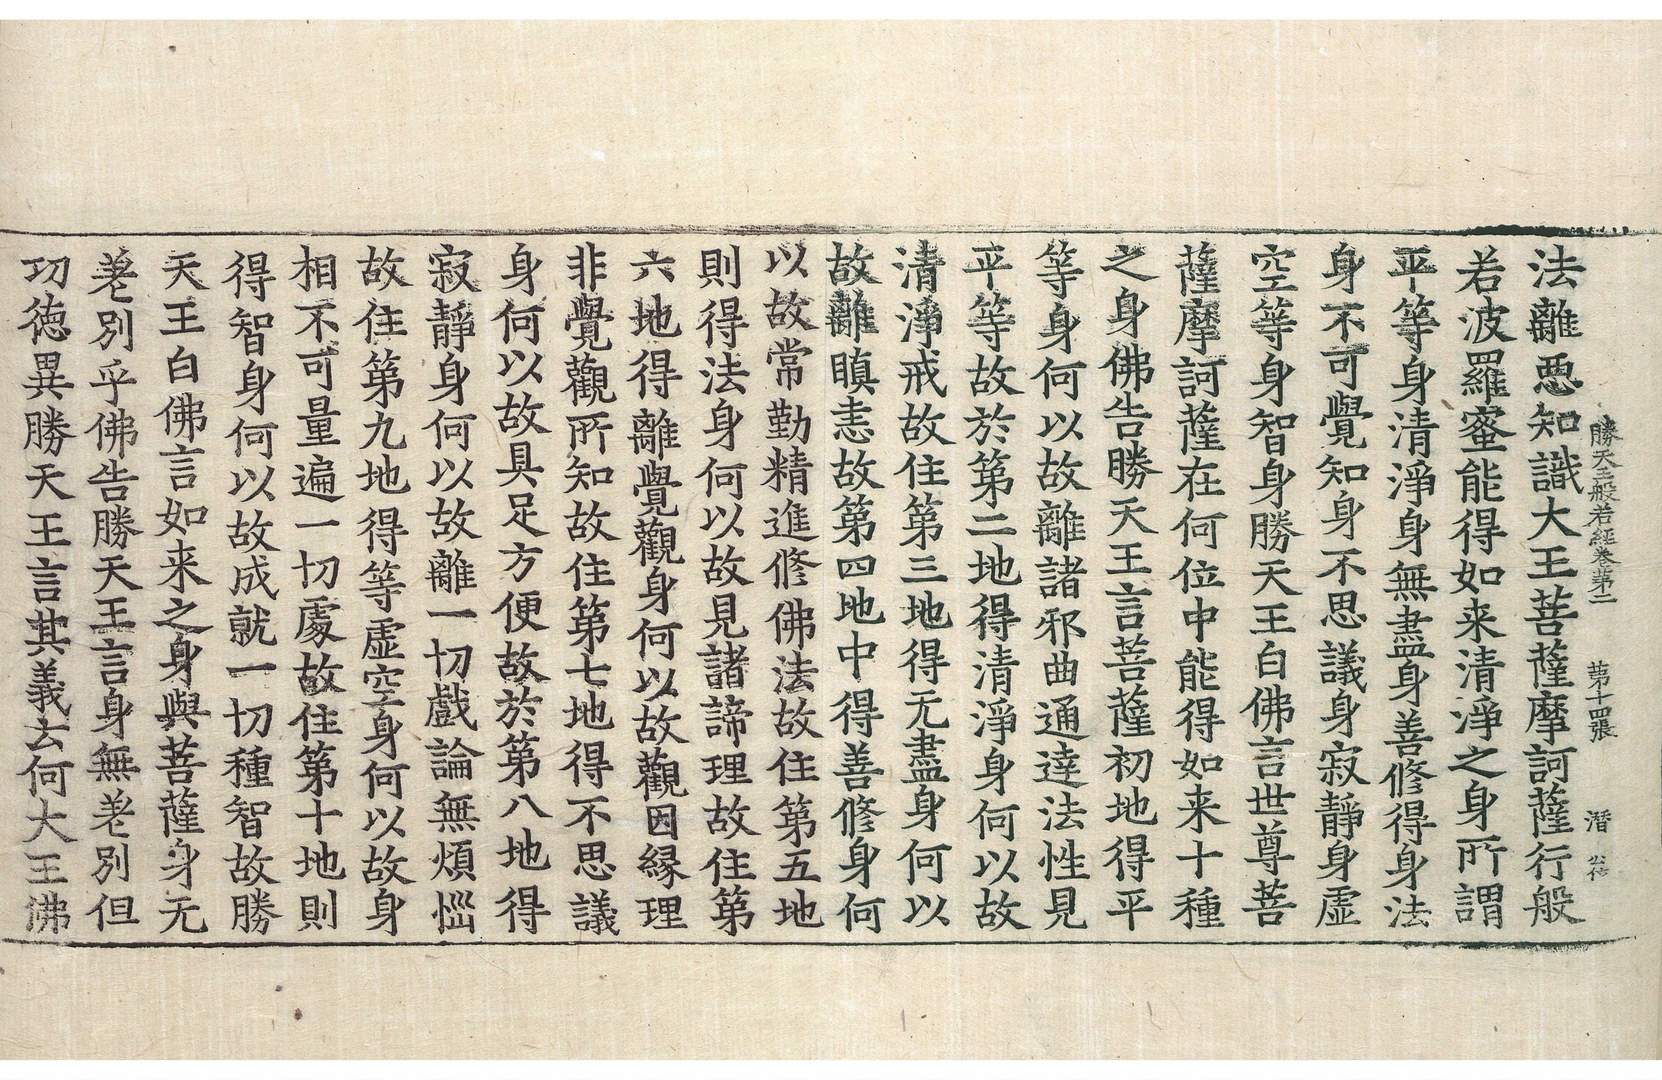 勝天王般若経卷第二　第十四張　潛
法離悪知識大王菩薩摩訶薩行般
若波羅蜜能得如来清淨之身所謂
平等身清淨身無盡身善修得身法
身不可覺知身不思議身寂靜身虛
空等身智身勝天王白佛言世尊菩
薩摩訶薩在何位中能得如来十種
之身佛告勝天王言菩薩初地得平
等身何以故離諸邪曲通達法性見
平等故於第二地得清淨身何以故
清淨戒故住第三地得无盡身何以
故離瞋恚故第四地中得善修身何
以故常勤精進修佛法故住第五地
則得法身何以故見諸諦理故住第
六地得離覺觀身何以故觀因緣理
非覺觀所知故住第七地得不思議
身何以故具足方便故於第八地得
寂靜身何以故離一切戲論無煩惱
故住第九地得等虛空身何以故身
相不可量遍一切處故住第十地則
得智身何以故成就一切種智故勝
天王白佛言如来之身與菩薩身无
差別乎佛告勝天王言身無差別但
功德異勝天王言其義云何大王佛